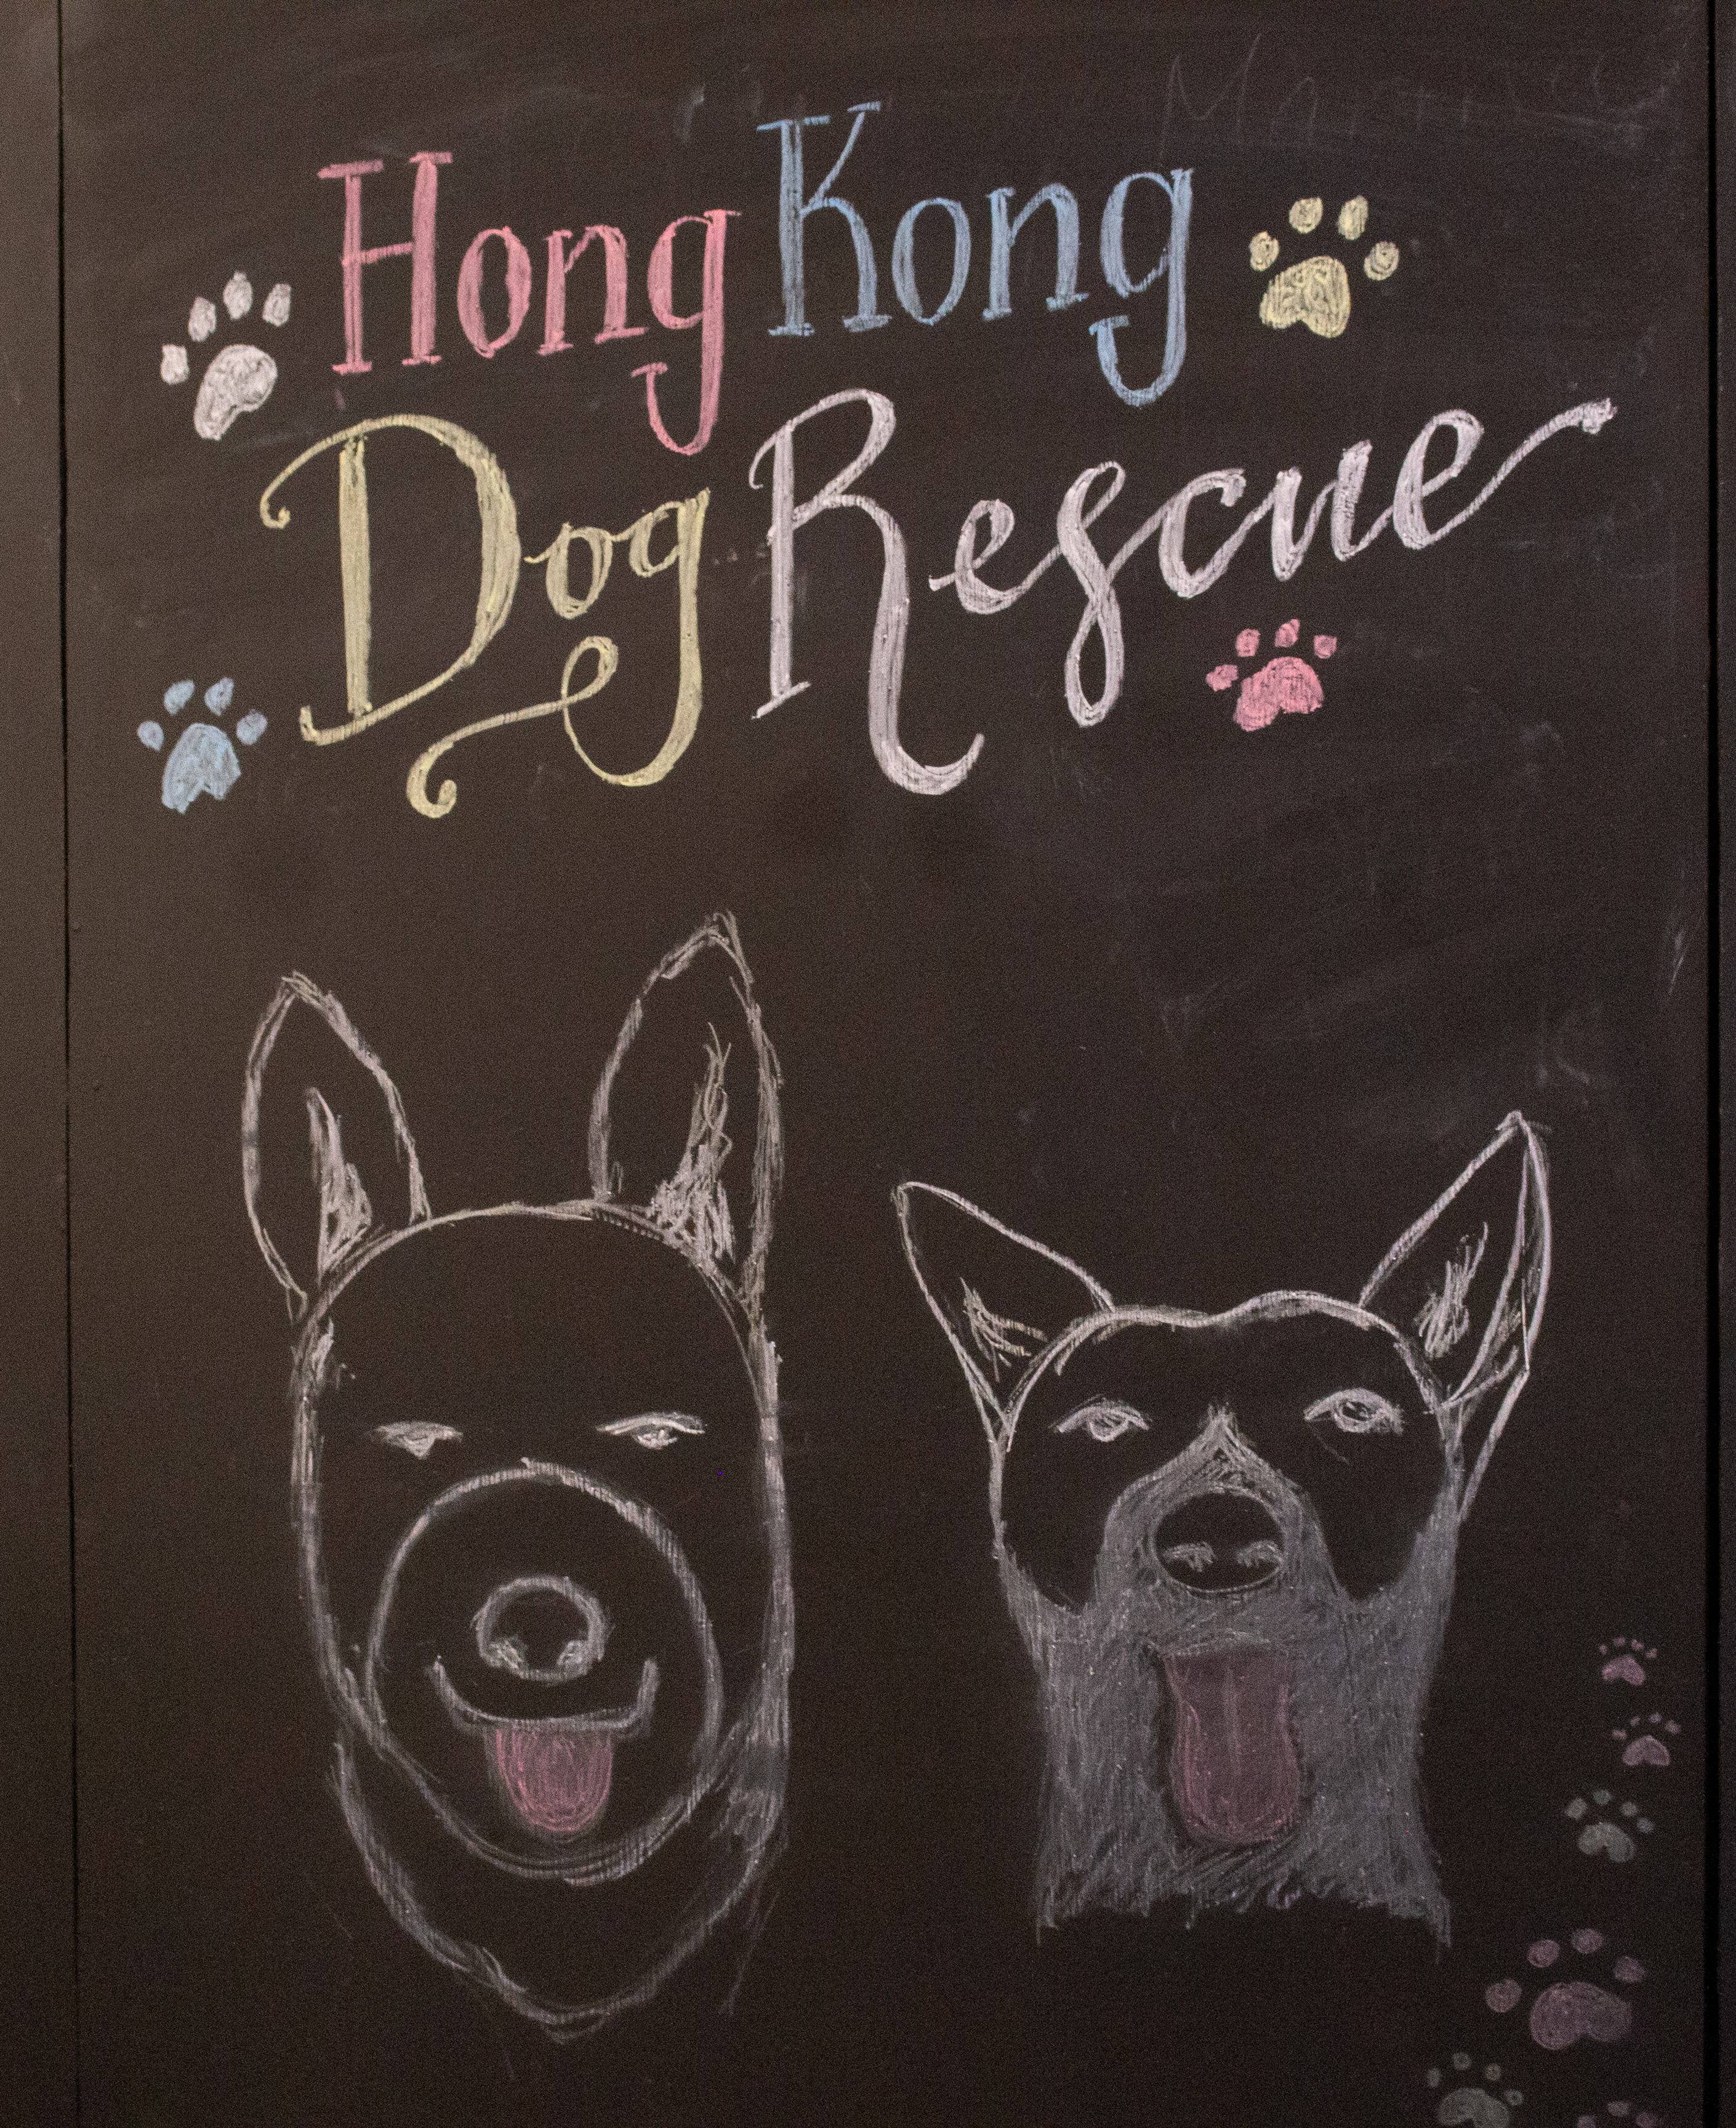 Hong Kong
Dog Rescue